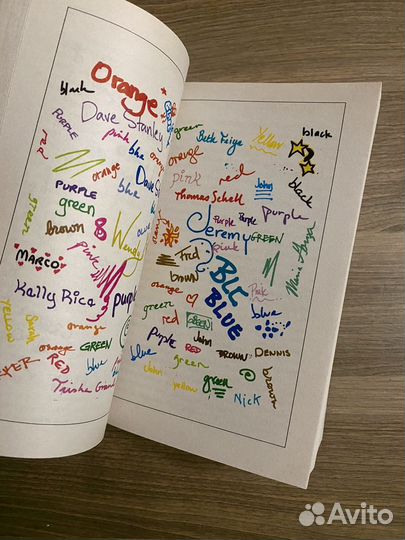 Orange
black
Dave Stanley
PURPLE
pink
blue
orange
red
orange
blue
PURPLE
green
brown
MARCO
pink
purple
Kelly Rice
YELLOW
Sarah
orange
orange
GREEN
RED
blue
green
Beth Feiya
Yellow
black
orange
pink
red
John
black
Thomas Schell
purple
green
Jeremy
Purple
Purple
GREEN
pink
Fred
brown
BLU
BLUE
orange
Pink
green
red
GREEN
blue
purple
John
RED
BROWN
DENNIS
blue
green
brown
John
yellow
green
Nick
Avito